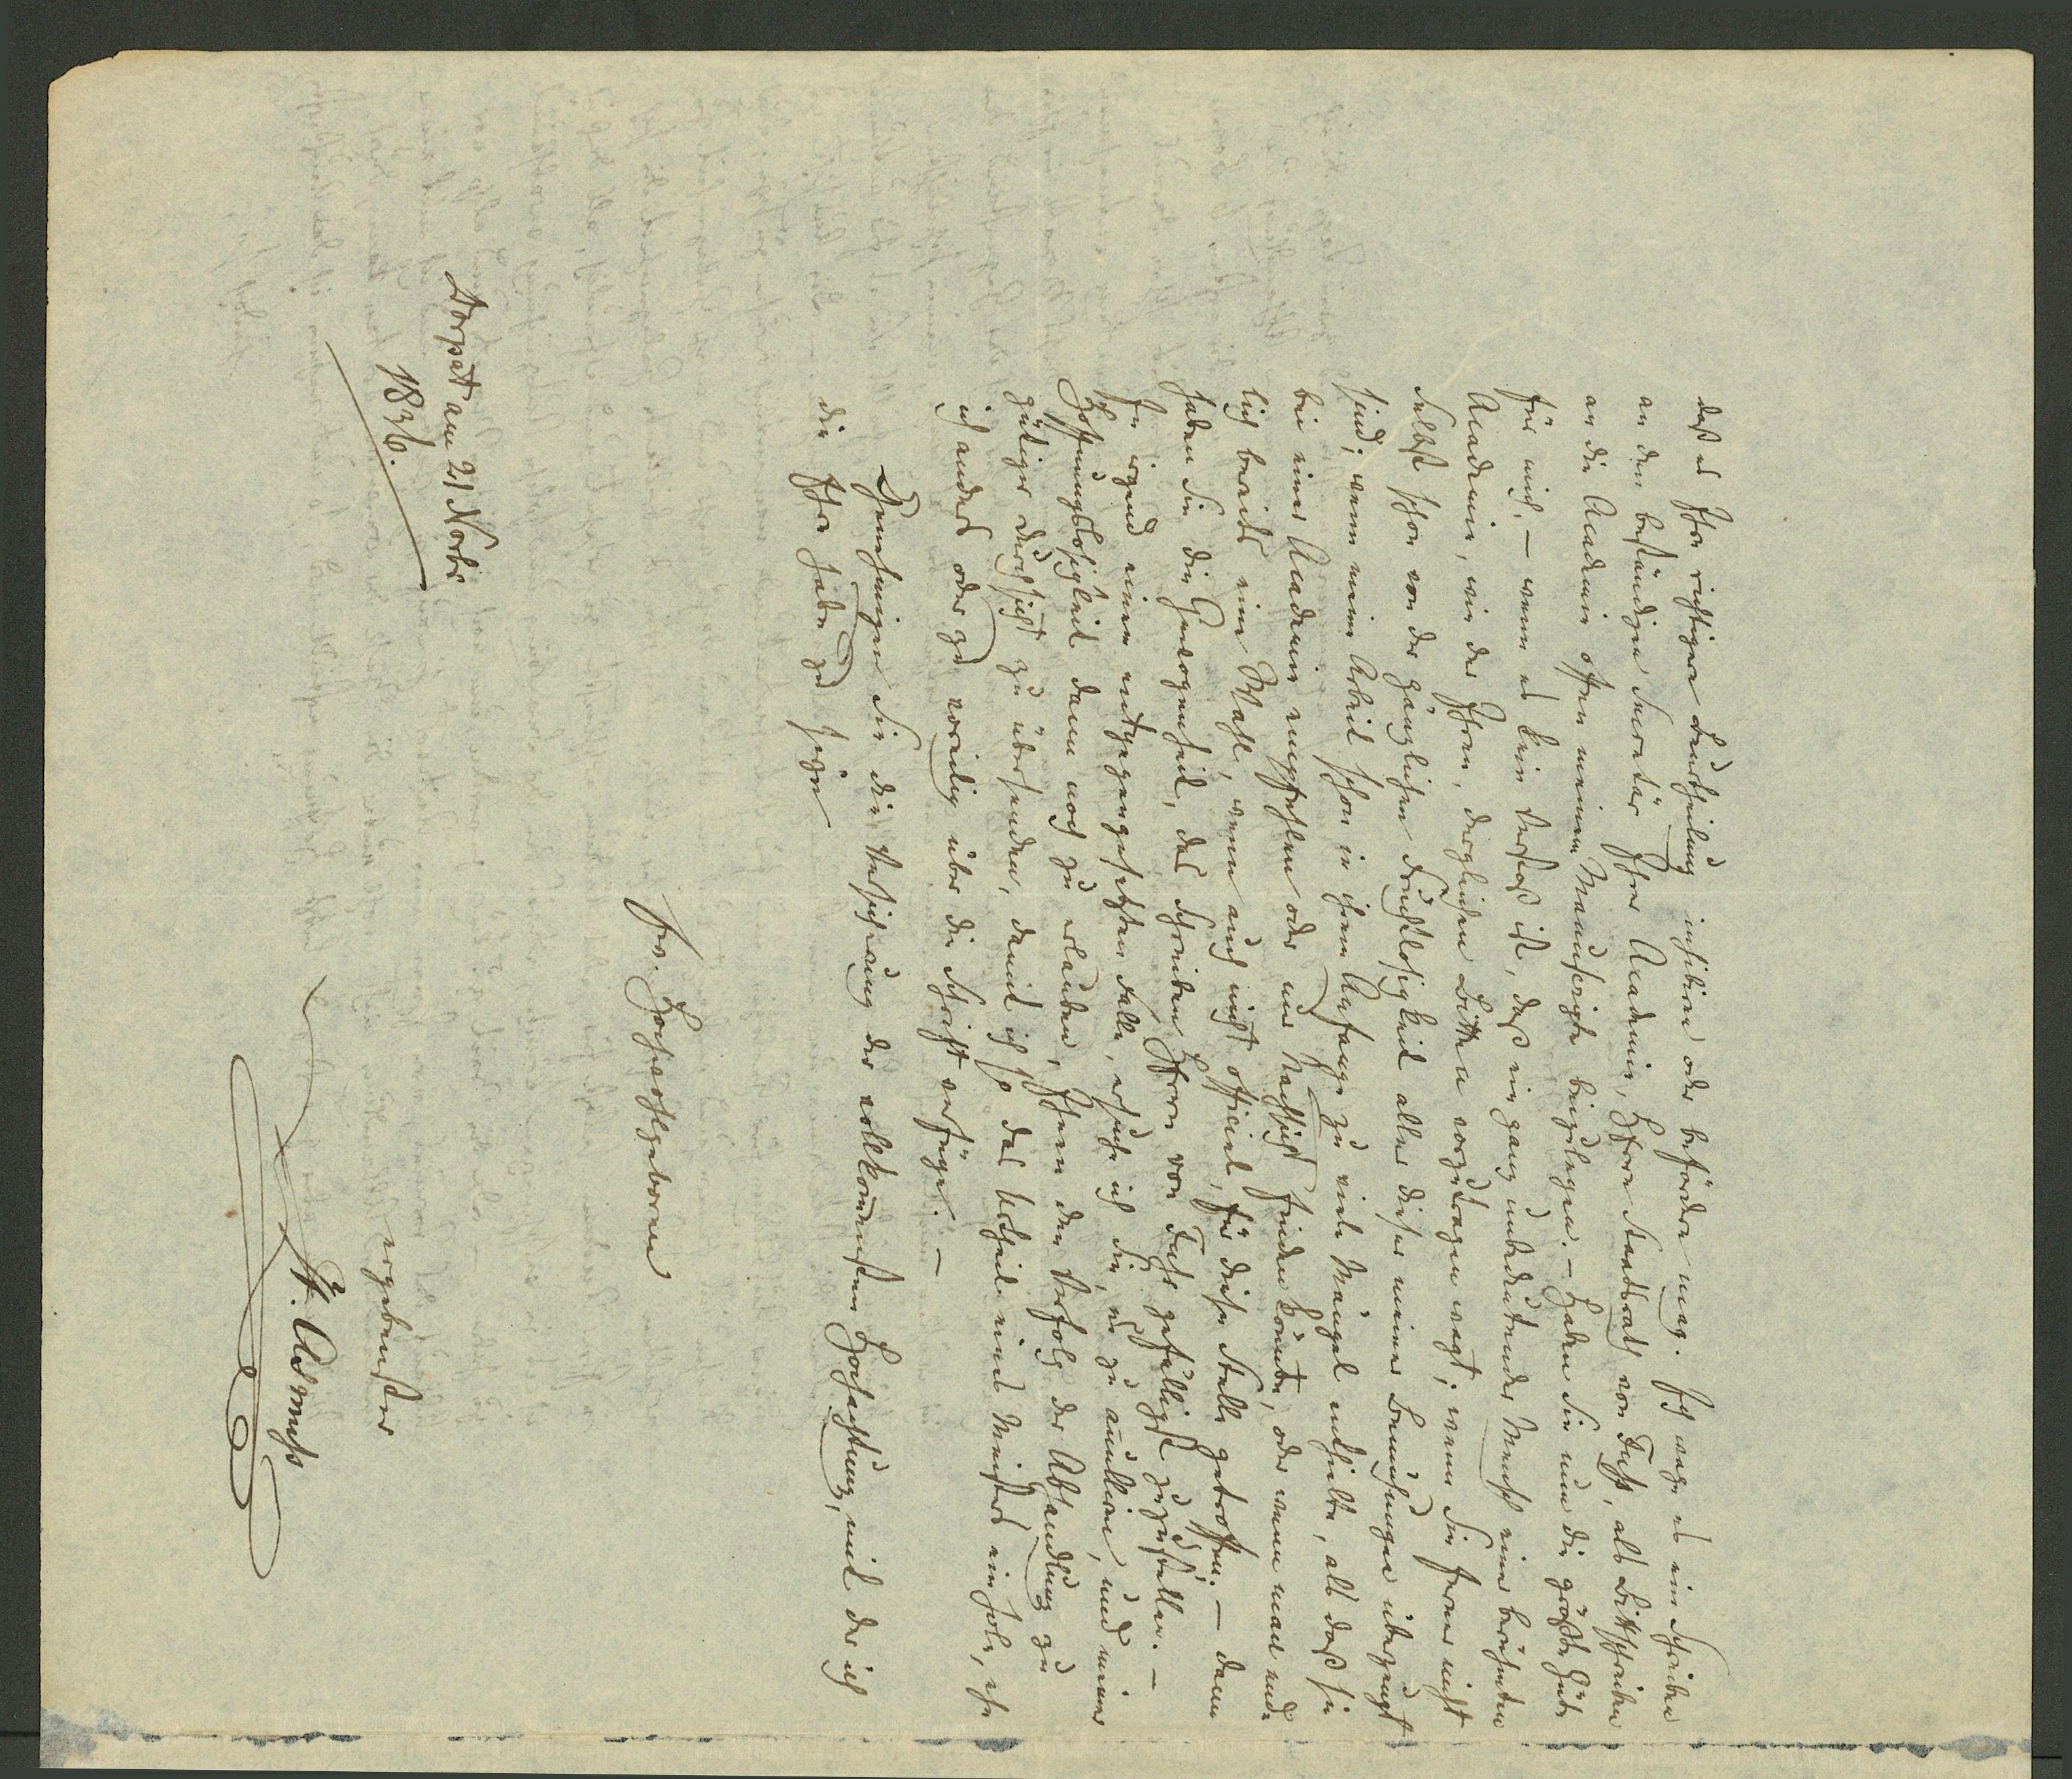 daß es Ihre richtigere Beurtheilung inhibiren oder befördern mag. Ich wage es ein Schreiben
an den beständigen Secretär Ihrer Academie, Herrn Staatsrath von Fuss, als Bittschreiben
an die Academie offen meinem Manuscripte beizulegen. – Haben Sie nun die größte Güte
für mich, – wenn es kein Verstoß ist, daß ein ganz unbedeutender Mensch einer berühmten
Academie, wie der Ihren, dergleichen Bitten vorzutragen wagt; wenn Sie ferner nicht
selbst schon von der gänzlichen Fruchtlosigkeit aller dieser meiner Bemühungen überzeugt
sind; wenn meine Arbeit schon in ihrem Anfange zu viele Mängel enthielte, als daß sie
bei einer Academie empfohlen oder nur Nachsicht finden könnte, oder wenn man end-
lich bereits eine Wahl, wenn auch nicht officiel, für diese Stelle getroffen. – dann
haben Sie die Gewogenheit, das Schreiben Herrn von Fuss gefälligst zuzustellen. –
In irgend einem entgegengesetzten Falle, ersuche ich Sie, es zu annulliren, und meiner
Hoffnungslosigkeit dann noch zu erlauben, Ihnen den Verfolg der Abhandlung zu
gütiger Durchsicht zu übersenden, damit ich so das Urtheil eines Meisters einhole, ehe
ich anders oder zu voreilig über die Schrift verfüge. –
Genehmigen Sie die Versicherung der vollkommensten Hochachtung, mit der ich
die Ehre habe zu seyn
Ew. Hochwohlgeboren
ergebenster
Dorpat am 21 Novbr
1836.